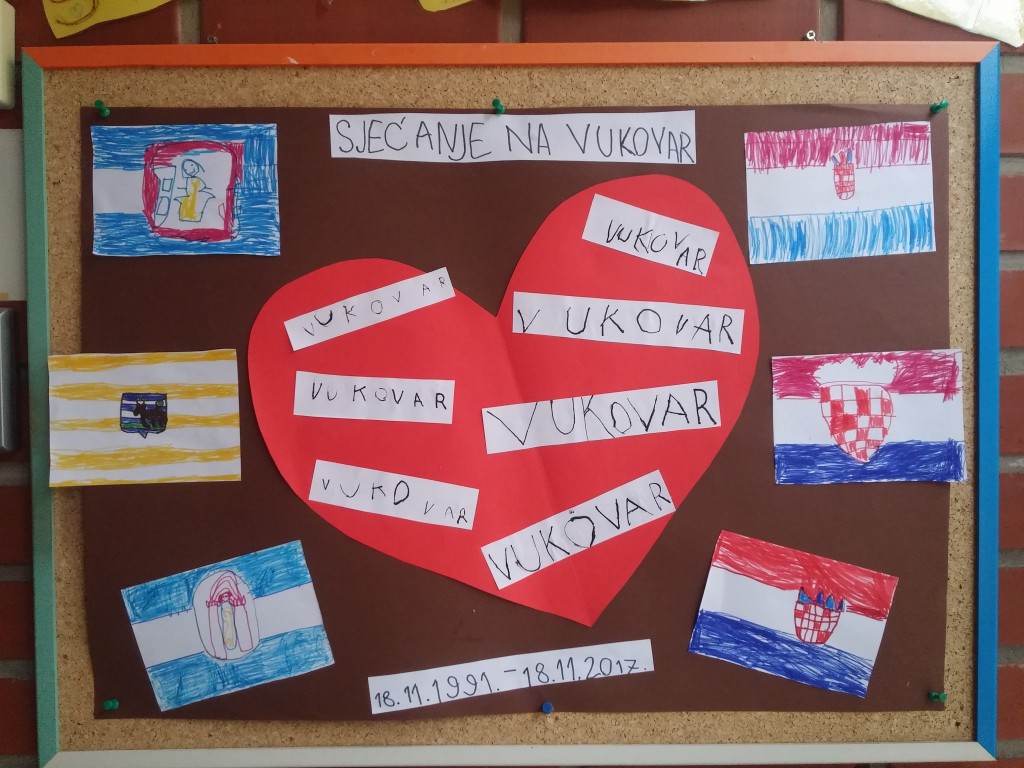 SJEĆANJE NA VUKOVAR
VUKOVAR
VUKOVAR
VUKOVAR
VUKOVAR
VUKOVAR
VUKOVAR
VUKOVAR
18.11.1991.-18.11.2017.